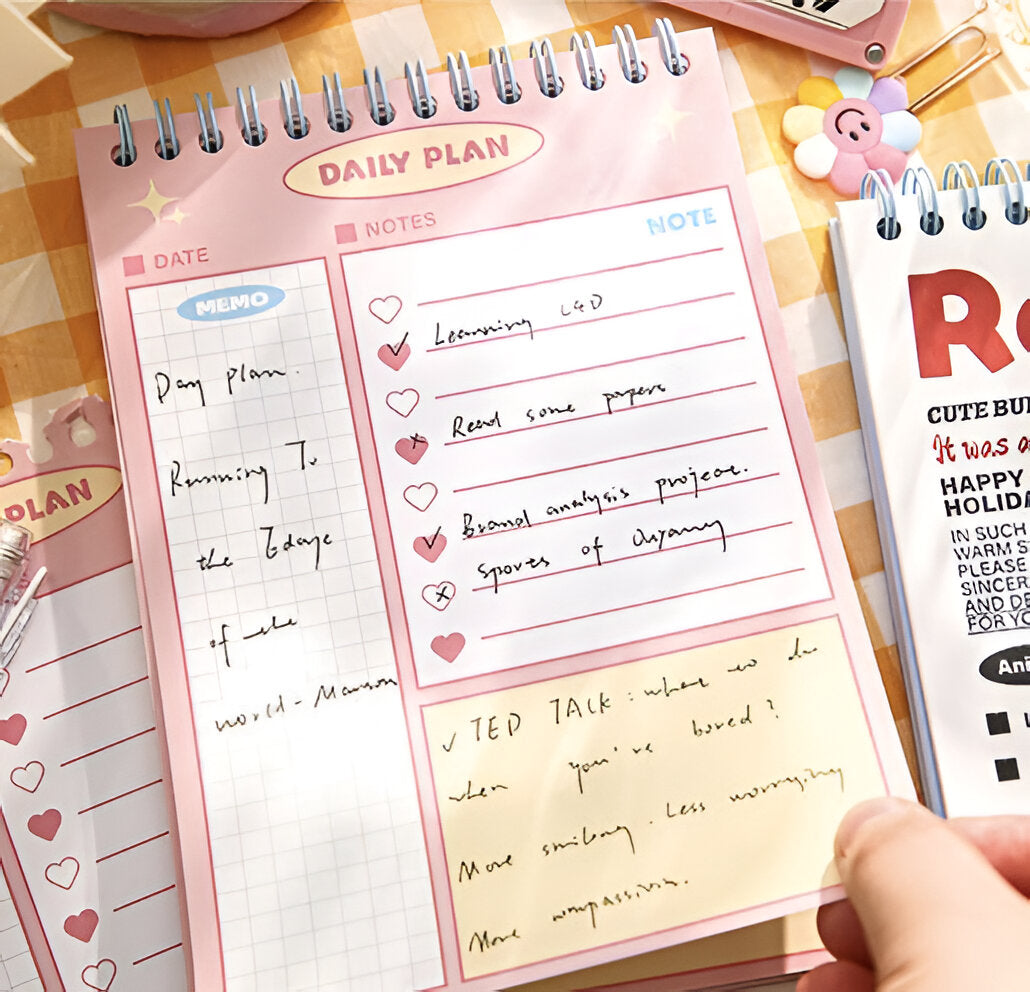 DAILY PLAN
DATE
MEMO
Day plan.
Running To
the Edge
of the
world-
NOTES
NOTE
Learning
Read some papers
Brand analysis project.
Sports of
✓ TED TALK: what to do
when you're bored?
More smiling. Less worrying
More compassion.
PLAN
CUTE BU
It was a
HAPPY
HOLIDA
IN SUCH
WARM S
PLEASE
SINCER
AND DE
FOR YO
Ani